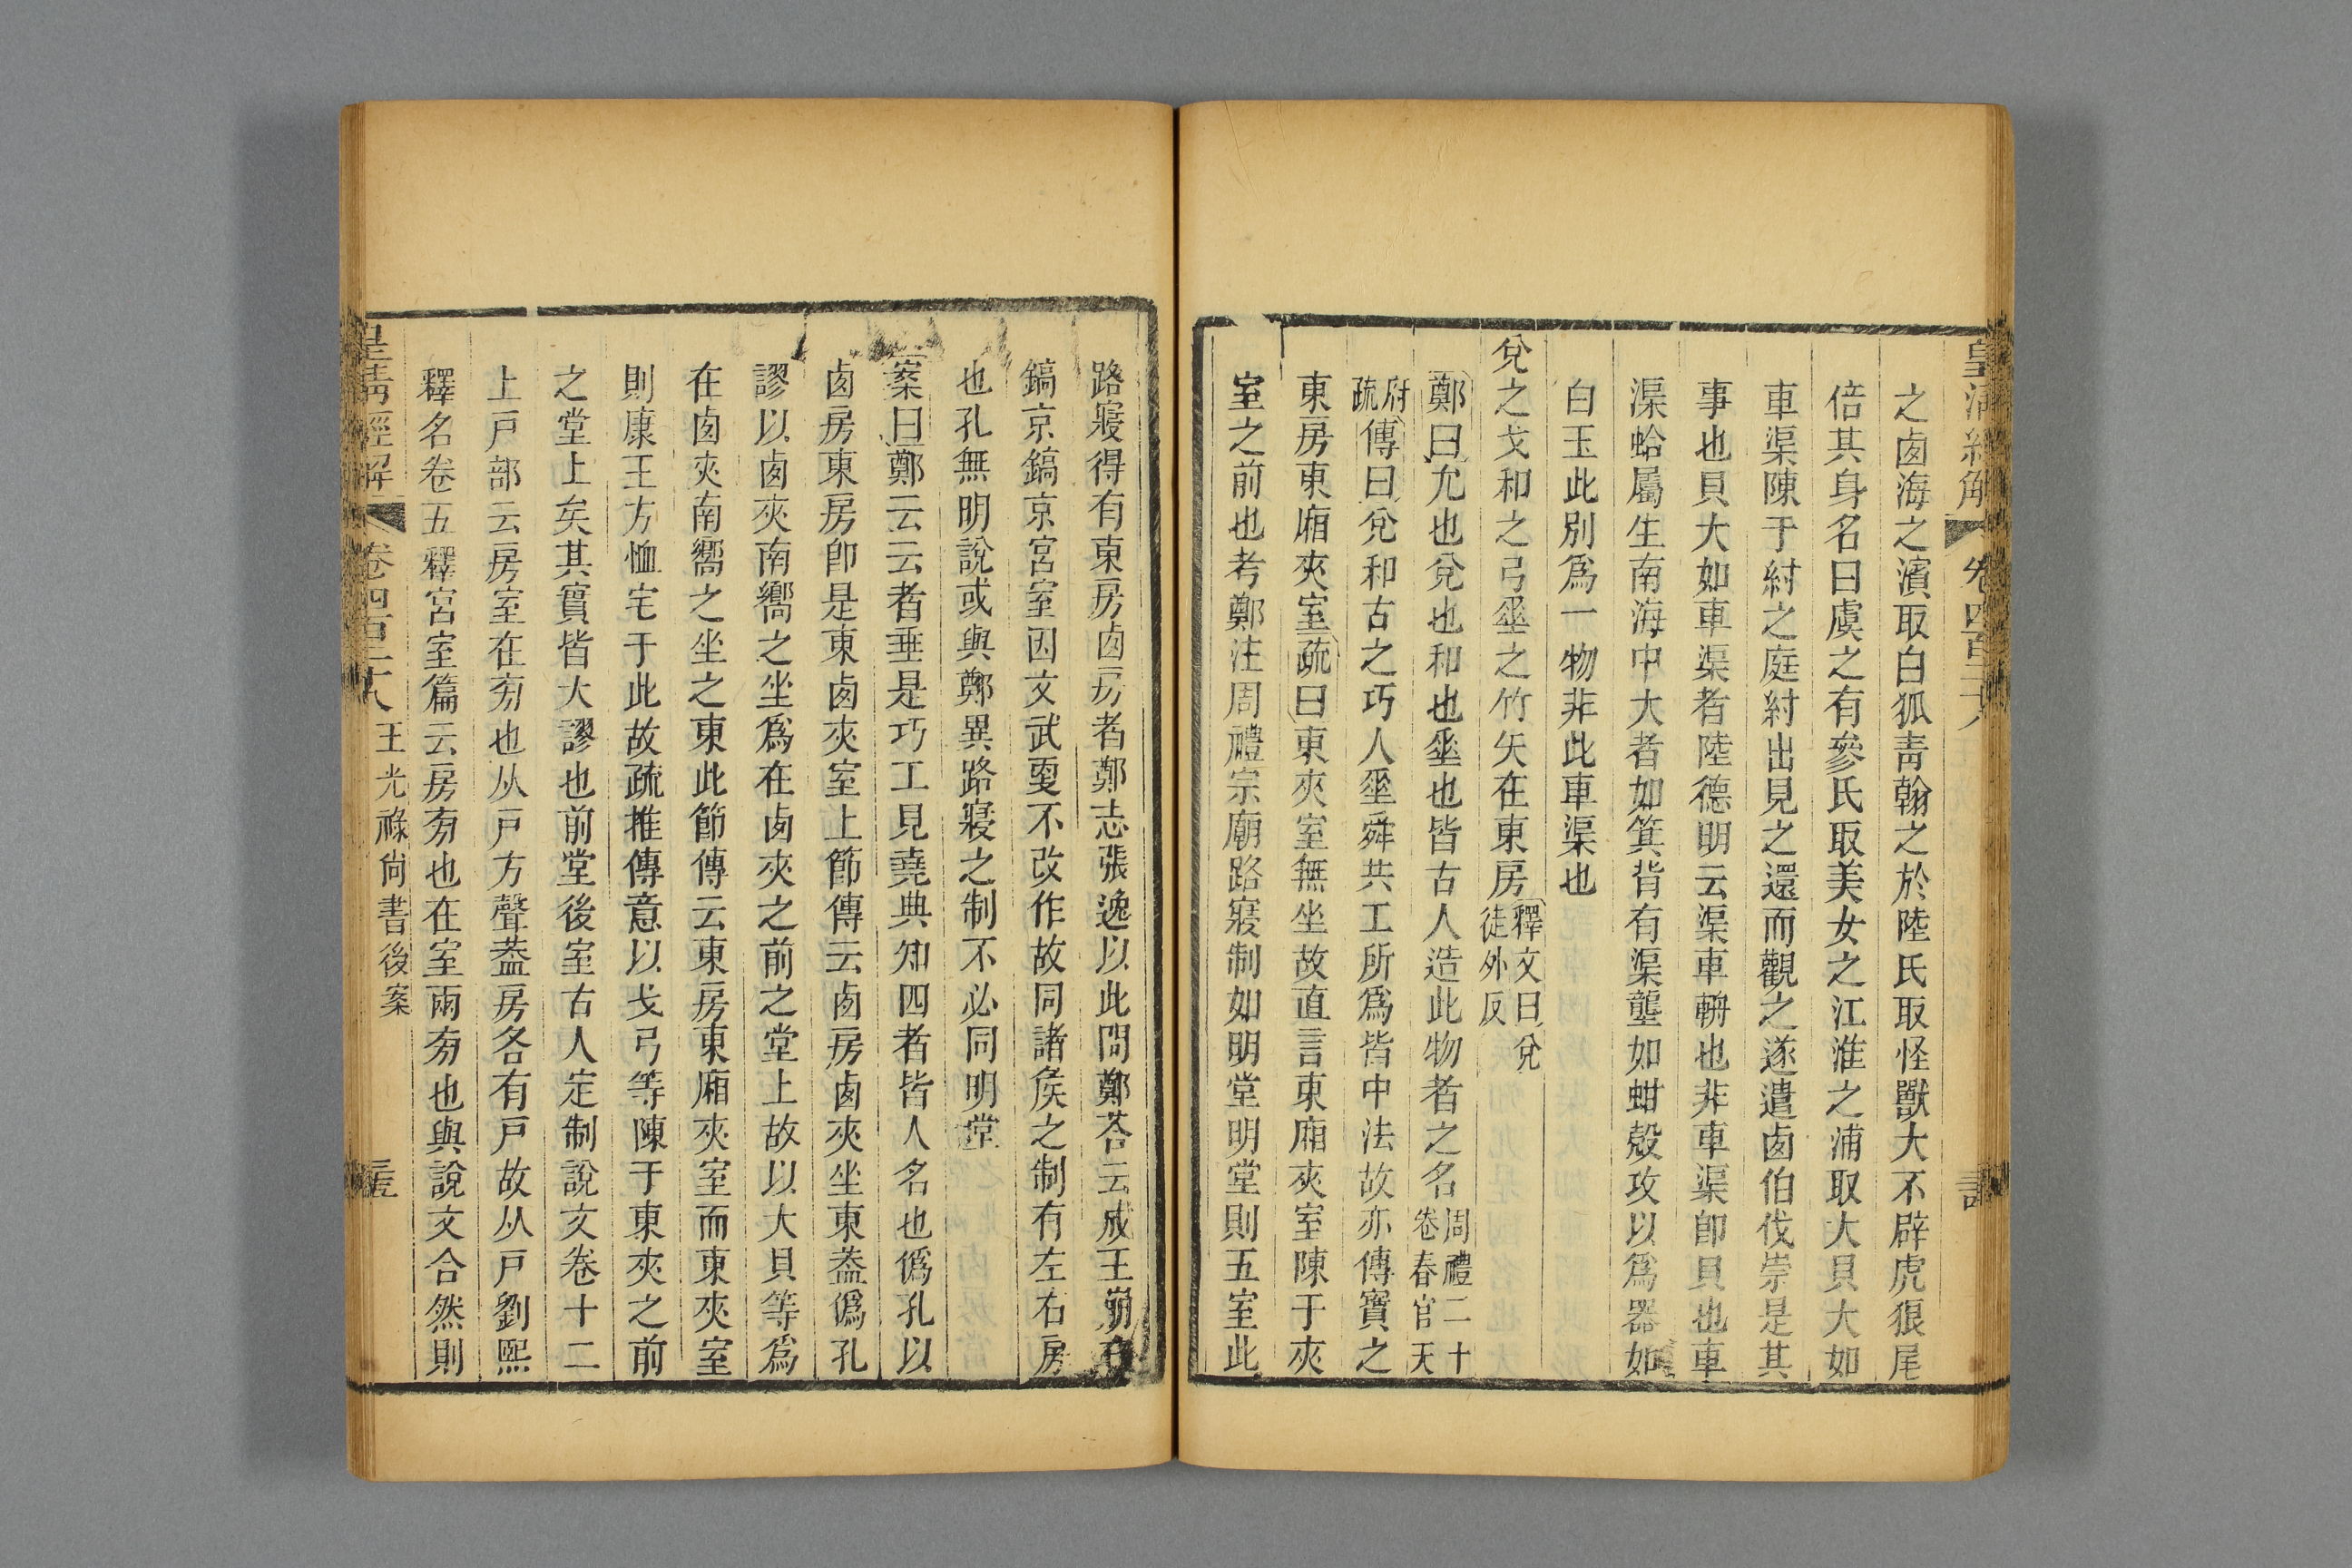 皇清經解
卷四百二十八
之卤海之濱取白狐靑翰之於陸氏取怪獸大不辟虎狠尾
倍其身名曰虞之有參氏取美女之江淮之浦取大貝大如
車渠陳于紂之庭紂出見之還而觀之遂遣卤伯伐崇是其
事也貝大如車渠者陸德明云渠車輞也非車渠卽貝也車
渠蛤屬生南海中大者如箕背有渠壟如蚶殻攻以爲器如
白玉此別爲一物非此車渠也
兊之戈和之弓垂之竹矢在東房釋文曰兊徒外反
鄭曰允也兊也和也垂也皆古人造此物者之名周禮二十卷春官天
府疏傳曰兊和古之巧人垂舜共工所爲皆中法故亦傳寶之
東房東廂夾室疏曰東夾室無坐故直言東廂夾室陳于夾
室之前也考鄭注周禮宗廟路寢制如明堂明堂則五室此
路寢得有東房卤房者鄭志張逸以此問鄭荅云成王崩在
鎬京鎬京宮室因文武更不改作故同諸矦之制有左右房
也孔無明說或與鄭異路寢之制不必同明堂
案曰鄭云云者垂是巧工見堯典知四者皆人名也僞孔以
卤房東房卽是東卤夾室上節傳云卤房卤夾坐東葢僞孔
謬以卤夾南嚮之坐爲在卤夾之前之堂上故以大貝等爲
在卤夾南嚮之坐之東此節傳云東房東廂夾室而東夾室
則康王方恤宅于此故疏推傳意以戈弓等陳于東夾之前
之堂上矣其實皆大謬也前堂後室古人定制說文卷十二
上戶部云房室在㫄也从戶方聲葢房各有戶故从戶劉熙
釋名卷五釋宮室篇云房㫄也在室兩㫄也與說文合然則
皇淸經解
卷四百二十八
王光祿尙書後案